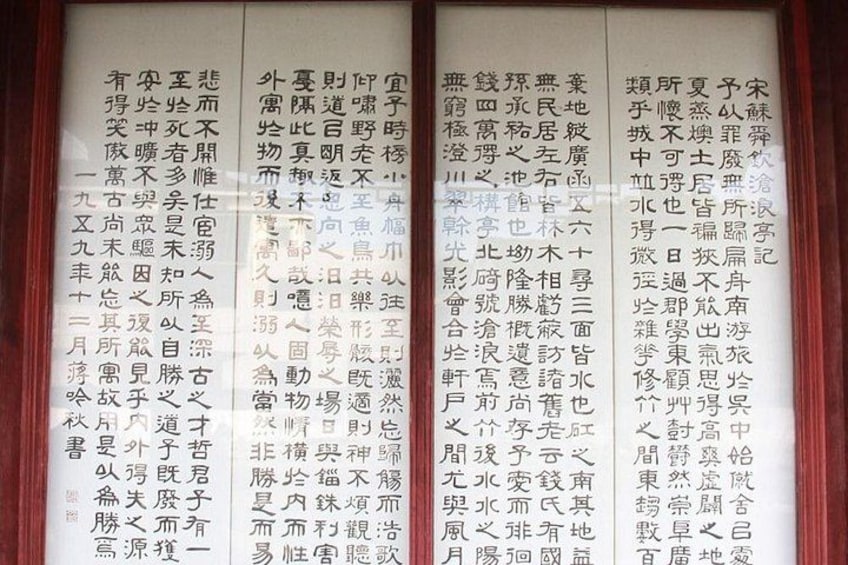 宋蘇舜欽滄浪亭記
予以罪廢無所歸扁舟南游旅於吳中始僦舍㠯處
夏蒸燠土居皆褊狹不能出氣思得高爽虛闢之地
所懷不可得也一日過郡學東顧艸封鬱然崇阜廣
類乎城中竝水得微徑於雜花修竹之間東趨數百
棄地縱廣函五六十尋三面皆水也矼之南其地益
無民居左右皆林木相虧蔽訪諸舊老云錢氏有國
孫承祐之池館也坳隆勝概遺意尚存予愛而徘徊
錢四萬得之構亭北碕號滄浪焉前竹後水水之陽
無窮極澄川翠榦光影會合於軒戶之間尤與風月
宜予時榜小舟幅巾以往至則灑然忘歸觴而浩歌
仰嘯野老不至魚鳥共樂形骸既適則神不煩觀聽
則道㠯明返思向之汨汨榮辱之場日與錙銖利害
戛隔此真趣不亦鄙哉噫人固動物情橫於內而性
外寓於物而後遣寓久則溺以為當然非勝是而易
悲而不開惟仕宦溺人為至深古之才哲君子有一
至於死者多矣是未知所以自勝之道予既廢而獲
安於沖曠不與眾驅因之復能見乎內外得失之源
有得笑傲萬古尚未能忘其所寓故用是以為勝焉
一九五九年十二月蔣吟秋書